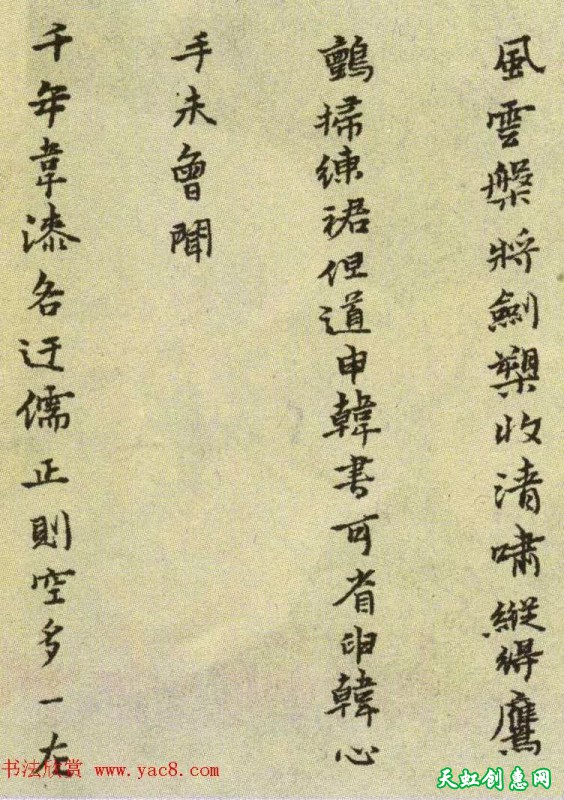 風雲槃將劍槊收清嘯縱得鷹
鸇掃練裙但道申韓書可省申韓心
手未曾聞
千年韋漆各迂儒正則空多一左
书法欣赏 www.yac8.com
天虹创惠网